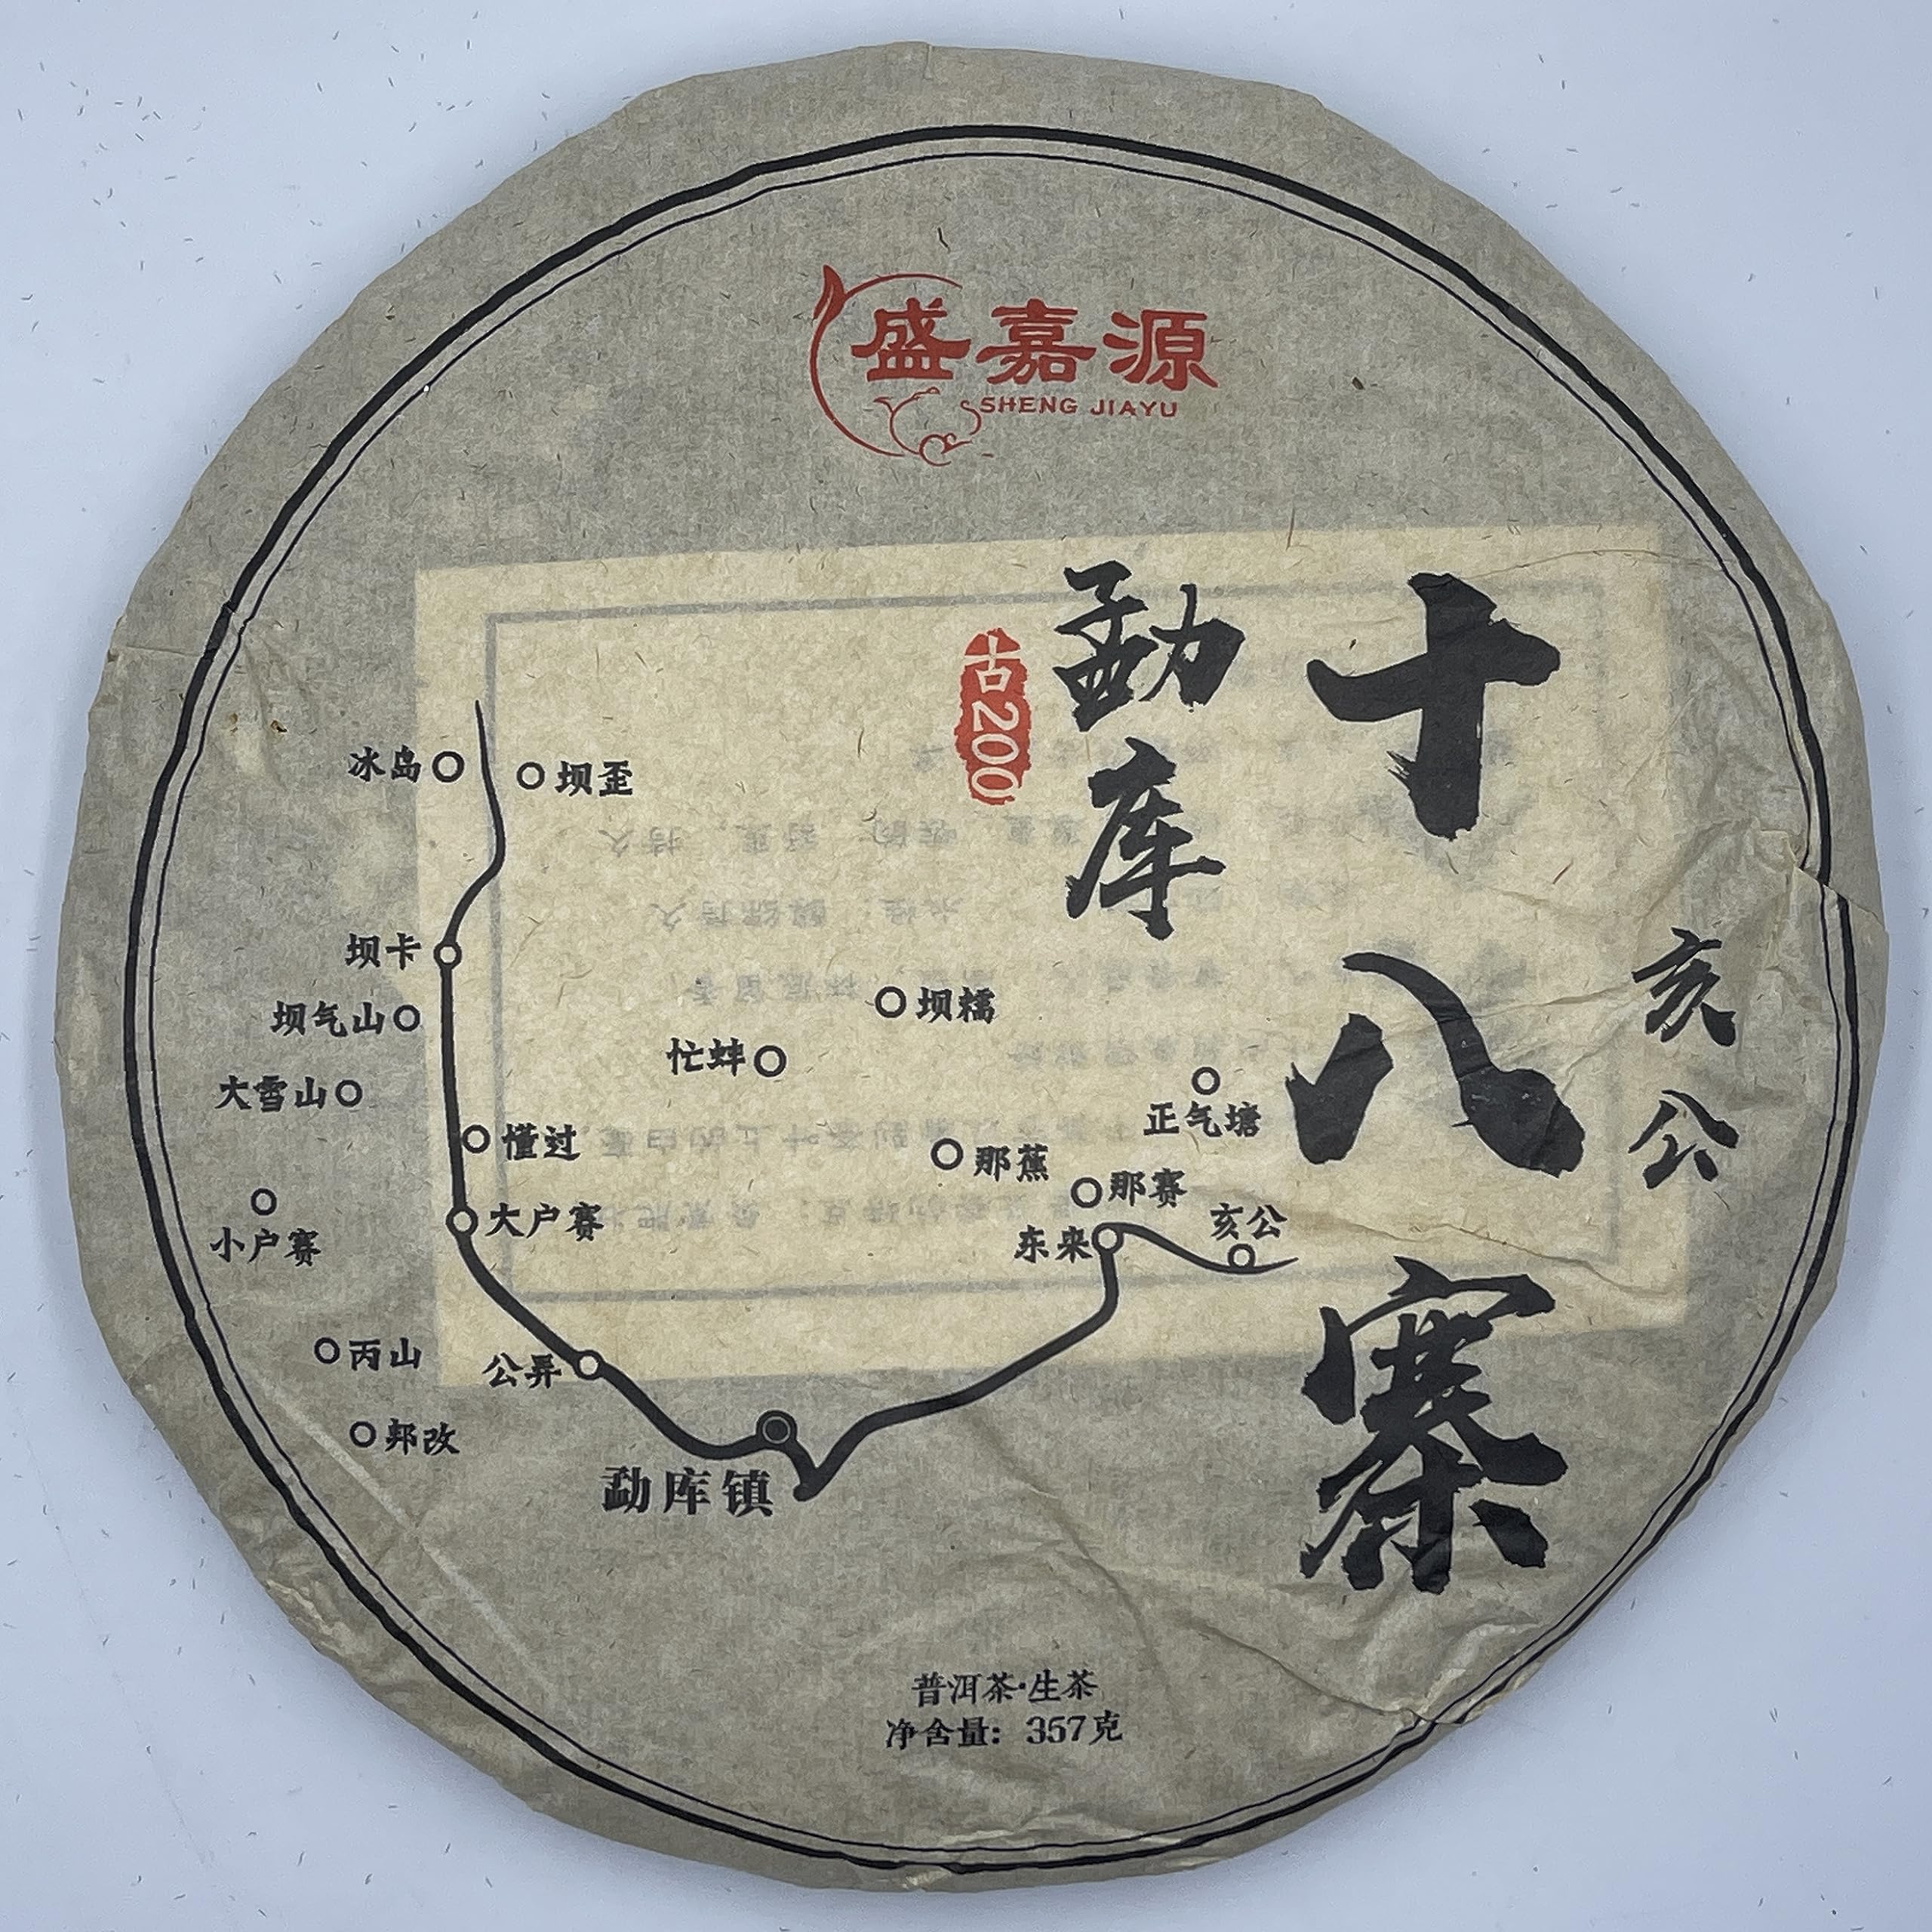 盛嘉源
SHENG JIAYU
十八寨
勐库
古200
亥公
冰岛
坝歪
坝卡
坝气山
坝糯
忙蚌
大雪山
正气塘
懂过
那蕉
那赛
小户赛
大户赛
东来
亥公
丙山
公弄
邦改
勐库镇
普洱茶·生茶
净含量：357克